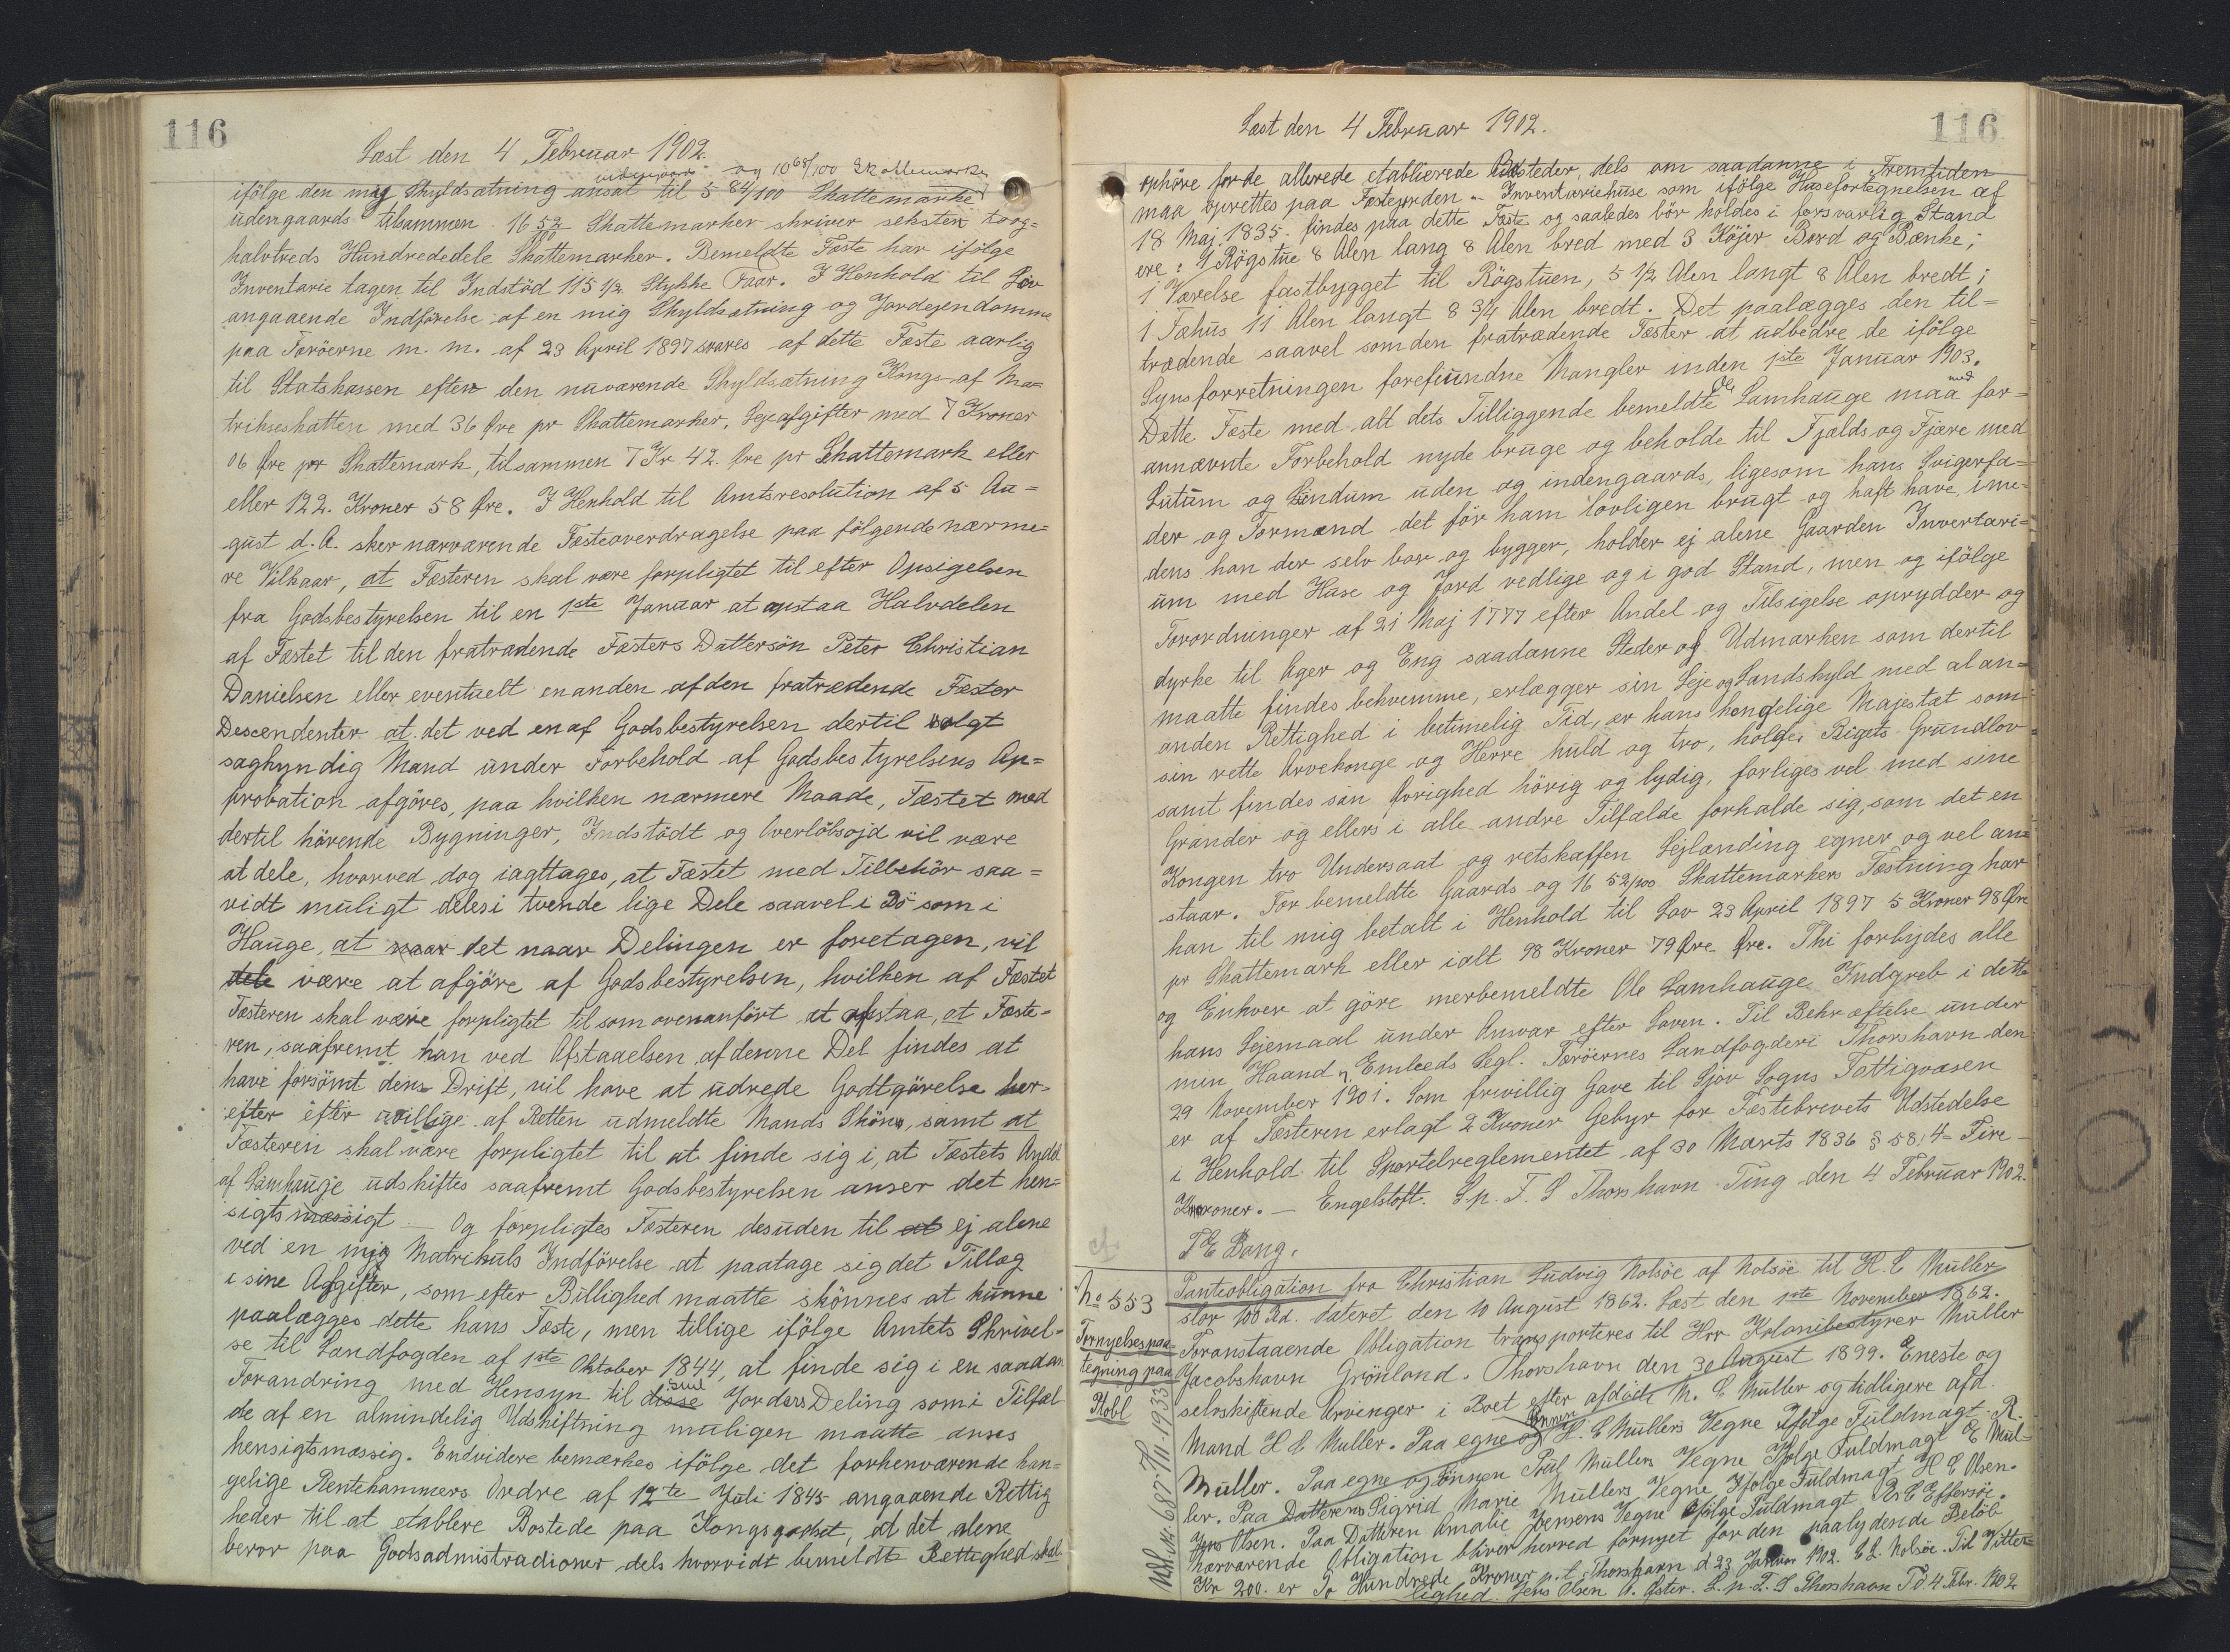 116
Læst den 4 Februar 1902.
udengaards og 10 68/100 Skattemarker
ifölge den nÿ Skyldsætning ansat til 5 84/100 Skattemarker
udengaards tilsammen 16 52/100 Skattemarker skriver seksten toog=
halvtreds Hundrededele Skattemarker. Bemeldte Fæste har ifölge
Inventarie tagen til Indstöd 115 1/2 Stykke Faar. I Henhold til Lov
angaaende Indförelse af en nÿ Skyldsætning og Jordejendomme
paa Færöerne m. m. af 23 April 1897 svares af dette Fæste aarlig
til Statskassen efter den nuværende Skyldsætning Konge af Ma=
trikseskatten med 36 Øre pr Skattemarker, Lejeafgifter med 7 Kroner
06 Øre pr Skattemark, tilsammen 7 Kr 42. Øre pr Skattemark eller
eller 122. Kroner 58 Øre. I Henhold til Amtsresolution af 5 Au=
gust d. A. sker nærværende Fæsteoverdragelse paa fölgende nærme=
re Vilkaar, at Fæsteren skal være forpligtet til efter Opsigelsen
fra Godsbestyrelsen til en 1ste Januar at afstaa Halvdelen
af Fæstet til den fratrædende Fæsters Dattersön Peter Christian
Danielsen eller eventuelt en anden af den fratrædende Fæster
Descendenter at det ved en af Godsbestyrelsen dertil valgt
sagkyndig Mand under Forbehold af Godsbestyrelsens Ap=
probation afgöres, paa hvilken nærmere Maade, Fæstet med
dertil hörende Bygninger, Indstödt og Overlöbsojd vil være
at dele, hvorved dog iagttages, at Fæstet med Tilbehör saa=
vidt muligt deles i tvende lige Dele saavel i Bö som i
Hauge, at naar det naar Delingen er foretagen, vil
dele være at afgöre af Godsbestyrelsen, hvilken af Fæstet
Fæsteren skal være forpligtet til som ovenanfört at afstaa, at Fæste=
ren, saafremt han ved Afstaaelsen af denne Del findes at
have forsömt dens Drift, vil have at udrede Godtgörelse her=
efter efter uvillige af Retten udmeldte Mands Skön, samt at
Fæsteren skal være forpligtet til at finde sig i, at Fæstets Andel
af Lamhauge udskiftes saafremt Godsbestyrelsen anser det hen=
sigtsmæssigt. — Og forpligtes Fæsteren desuden til at ej alene
ved en nÿ Matrikuls Indförelse at paatage sig det Tillæg
i sine Afgifter, som efter Billighed maatte skönnes at kunne
paalægges dette hans Fæste, men tillige ifölge Amtets Skrivel=
se til Landfogden af 1ste Oktober 1844, at finde sig i en saadan
Forandring med Hensyn til disse Jorders Deling som i Tilfæl
de af en almindelig Udskiftning muligen maatte anses
hensigtsmæssig. Endvidere bemærkes ifölge det forhenværende kon=
gelige Rentekammers Ordre af 12te Juli 1845 angaaende Rettig
heder til at etablere Bostede paa Kongsgodset, at det alene
beror paa Godsadmistradioner dels hvorvidt bemeldte Rettighed skal
116
Læst den 4 Februar 1902.
ophöre for de allerede etablierede Bosteder, dels om saadanne i Fremtiden
maa oprettes paa Fæstejorden. Inventariehuse som ifölge Husefortegnelsen af
18 Maj 1835 findes paa dette Fæste og saaledes bör holdes i forsvarlig Stand
ere: 1 Rögstue 8 Alen lang 8 Alen bred med 3 Köjer Bord og Bænke;
1 Værelse fastbygget til Rögstuen, 5 1/2 Alen langt 8 Alen bredt;
1 Fæhus 11 Alen langt 8 3/4 Alen bredt. Det paalægges den til=
trædende saavel som den fratrædende Fæster at udbedre de ifölge
Synsforretningen forefundne Mangler inden 1ste Januar 1903.
Dette Fæste med alt dets Tilliggende bemeldte Ole Lamhauge maa med for=
annævnte Forbehold nyde bruge og beholde til Fjælds og Fjære med
Lutum og Lundum uden og indengaards, ligesom hans Svigerfa=
der og Formænd det för ham lovligen brugt og haft have, ime=
dens han der selv bor og bygger, holder ej alene Gaarden Inventari=
um med Huse og Jord vedlige og i god Stand, men og ifölge
Forordninger af 21 Maj 1777 efter Andel og Tilsigelse oprydder og
dyrke til Ager og Eng saadanne Steder af Udmarken som dertil
maatte findes bekvemme, erlægger sin Leje og Landskyld med al an=
anden Rettighed i betimelig Tid, er hans kongelige Majestæt som
sin rette Arvekonge og Herre huld og tro, holder Rigets Grundlov
samt findes sin Övrighed hörig og lydig, forliges vel med sine
Grander og ellers i alle andre Tilfælde forholde sig, som det en
Kongen tro Undersaat og retskaffen Lejlænding egner og vel an=
staar. For bemeldte Gaards og 16 52/100 Skattemarkers Fæstning har
han til mig betalt i Henhold til Lov 23 April 1897 5 Kroner 98 Øre
pr Skattemark eller ialt 98 Kroner 79 Øre Øre. Thi forbydes alle
og Enhver at göre merbemeldte Ole Lamhauge Indgreb i dette
hans Lejemaal under Ansvar efter Loven. Til Bekræftelse under
min Haand og Embeds Segl. Færöernes Landfogderi Thorshavn den
29 November 1901. Som frivillig Gave til Sjov Sogns Fattigvæsen
er af Fæsteren erlagt 2 Kroner Gebyr for Fæstebrevets Udstedelse
i Henhold til Sportelreglementet af 30 Marts 1836 § 58, 4= Fire=
Kroner. — Engelstoft. L.p. F. S Thorshavn Ting den 4 Februar 1902.
T E Bang.
No 553
Pantiobligation fra Christian Ludvig Nolsöe af Nolsöe til H. C Müller
stor 100 Rd. dateret den 10 August 1862. Læst den 1ste November 1862.
Fornyelsespaa=
tegning paa
Pobl
Foranstaaende Obligation transporteres til Hrr Kolonibestyrer Müller
Jacobshavn Grönland. Thorshavn den 30 August 1899. Eneste og
selvskiftende Arvinger i Boet efter afdöde M. C Müller og tidligere afd.
Mand H C Muller. Paa egne og Sönnen H. C Müllers Vegne Ifölge Fuldmagt R.
Müller. Paa egne og Sönnen Poul Müllers Vegne Ifölge Fuldmagt E Mül=
ler. Paa Datterens Sigrid Marie Müllers Vegne Ifölge Fuldmagt H C Olsen.
Jens Olsen. Paa Datteren Amalie Jensens Vegne Ifölge Fuldmagt P. C Effersöe.
Nærværende Obligation bliver herved fornyet for den paalydende Belöb
Kr 200. er To Hundrede Kroner p. t. Thorshavn d 23 Januar 1902. C L. Nolsöe. Til Vitter=
lighed Jens Olsen A. Öster. L. p. F. S Thorshavn T d. 4 Febr. 1902